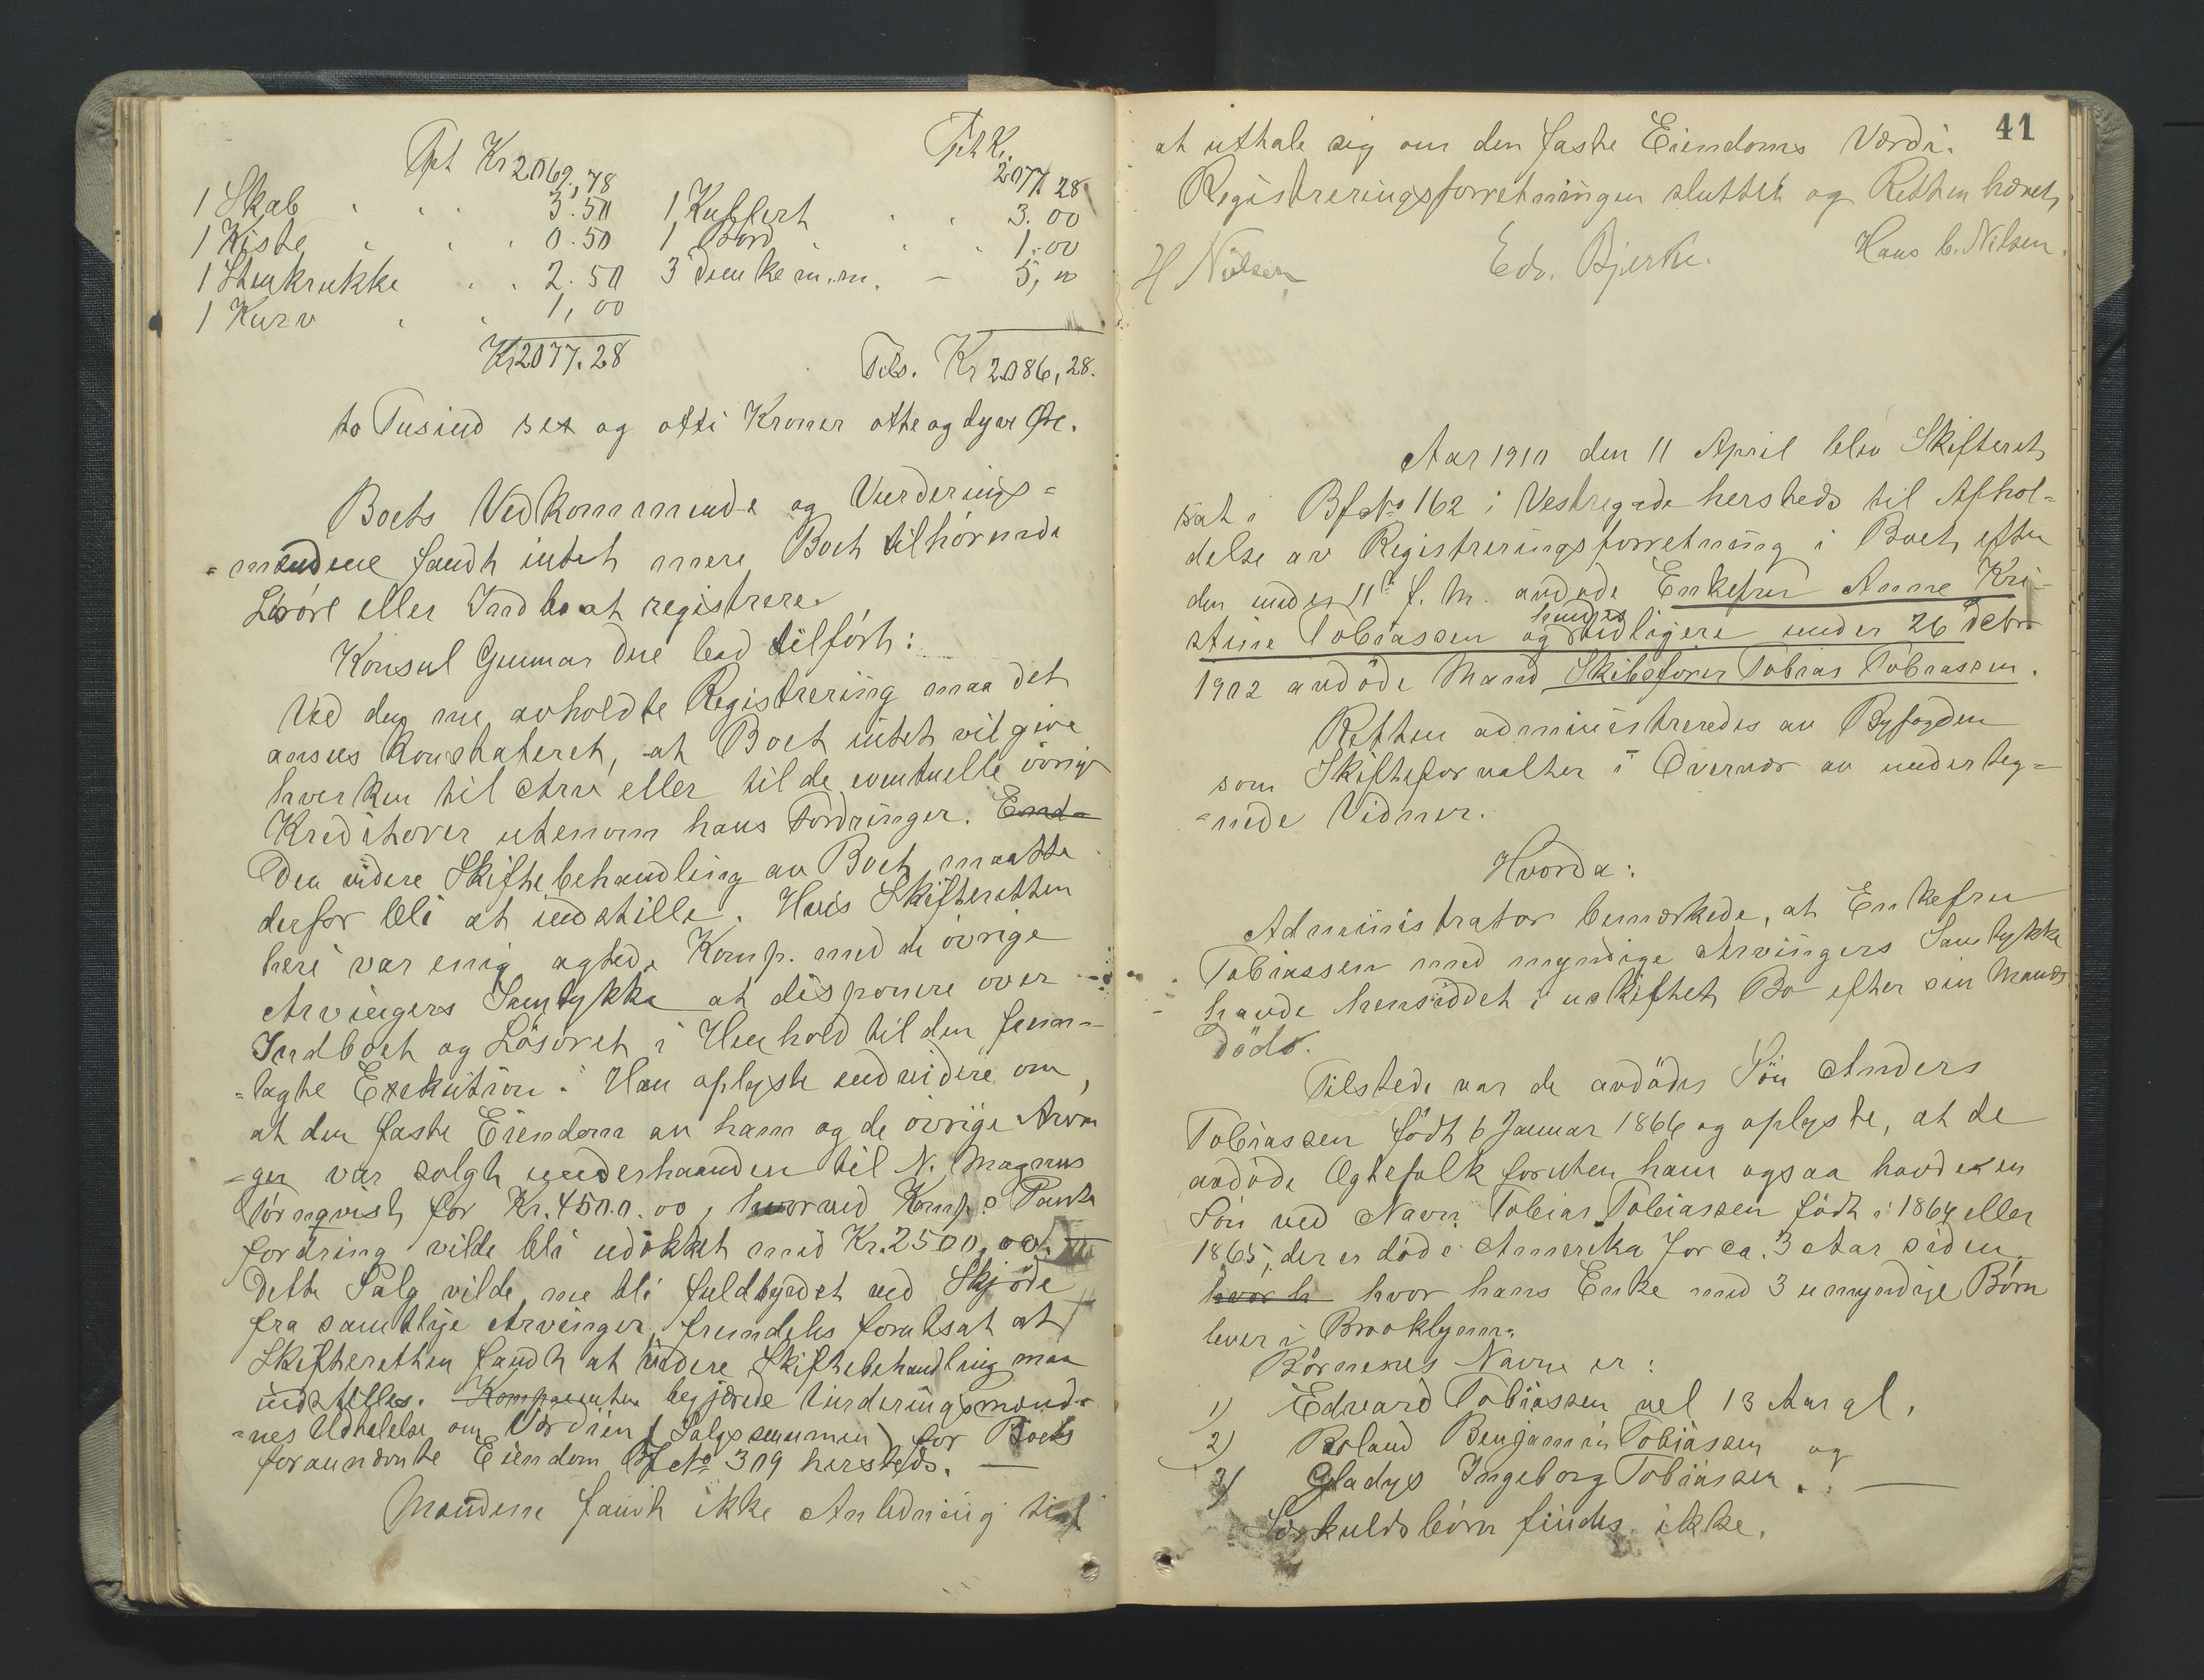 Tpt Kr 2069,78
1 Skab 3.50
1 Kiste 0.50
1 Stenkrukke 2.50
1 Kurv 1,00
Kr 2077.28
Tpt Kr. 2077.28
1 Kuffert 3.00
1 Bord 1.00
3 Dunke m.m. — 5,00
Tils. Kr 2086,28.
to Tusind sex og otti Kroner otte og tyve Øre.
Boets Vedkommende og Vurderings=
=mændene fandt intet mere Boet tilhørende
Løsøre eller Indbo at registrere.
Konsul Gunnar Due lod tilført:
Ved den nu avholdte Registrering maa det
ansees konstateret, at Boet intet vil give
hverken til Arv eller til de eventuelle øvrige
Kreditorer utenom hans Fordringer. End=
Den videre Skiftebehandling av Boet maatte
derfor bli at indstille. Hvis Skifteretten
heri var enig agtede Komp. med de øvrige
Arvingers Samtykke at disponere over
Indboet og Løsøret i Henhold til den frem=
=lagte Exekution. Han oplyste endvidere om,
at den faste Eiendom av ham og de øvrige Arvin
=ger var solgt underhaanden til N. Magnus
Törnqvist for Kr. 4500.00, hvorved Komp.s Pante
fordring vilde bli udækket med Kr. 2500,00.
Dette Salg vilde nu bli fuldbyrdet ved Skjøde
fra samtlige Arvinger, fremdeles forutsat at
Skifteretten fandt at videre Skiftebehandling maa
indstilles. Komparenten begjærede Vurderingsmænde
=nes Udtalelse om Værdien (Salgssummen) for Boets
forannævnte Eiendom Bf No 309 hersteds. —
Mændene fandt ikke Anledning til
41
at uttale sig om den faste Eiendoms Værdi.
Registreringsforretningen sluttet og Retten hævet,
H Nielsen Edv. Bjerke. Hans C. Nilsen.
Aar 1910 den 11 April blev Skifteret
sat i Bf No 162 i Vestregade hersteds til Afhol=
delse av Registreringsforretning i Boet efter
den under 11te f. M. avdøde Enkefru Anne Kri=
stine Tobiassen og hendes tidligere under 26 Debr
1902 avdøde Mand Skibsfører Tobias Tobiassen.
Retten administreredes av Byfogden
som Skifteforvalter i Overvær av underteg=
=nede Vidner.
Hvorda:
Administrator bemærkede, at Enkefru
Tobiassen med myndige Arvingers Samtykke
havde hensiddet i uskiftet Bo efter sin Mands
Død.
Tilstede var de avdødes Søn Anders
Tobiassen født 6 Januar 1866 og oplyste, at de
avdøde Egtefolk foruten ham ogsaa havde en
Søn ved Navn Tobias Tobiassen født i 1864 eller
1865, der er død i Amerika for ca. 3 Aar siden,
hvor h hvor hans Enke med 3 umyndige Børn
lever i Brooklynn.
Børnenes Navne er:
1) Edvard Tobiassen vel 13 Aar gl.
2) Roland Benjamin Tobiassen og
3) Gladys Ingeborg Tobiassen. —
Særkuldsbørn findes ikke.